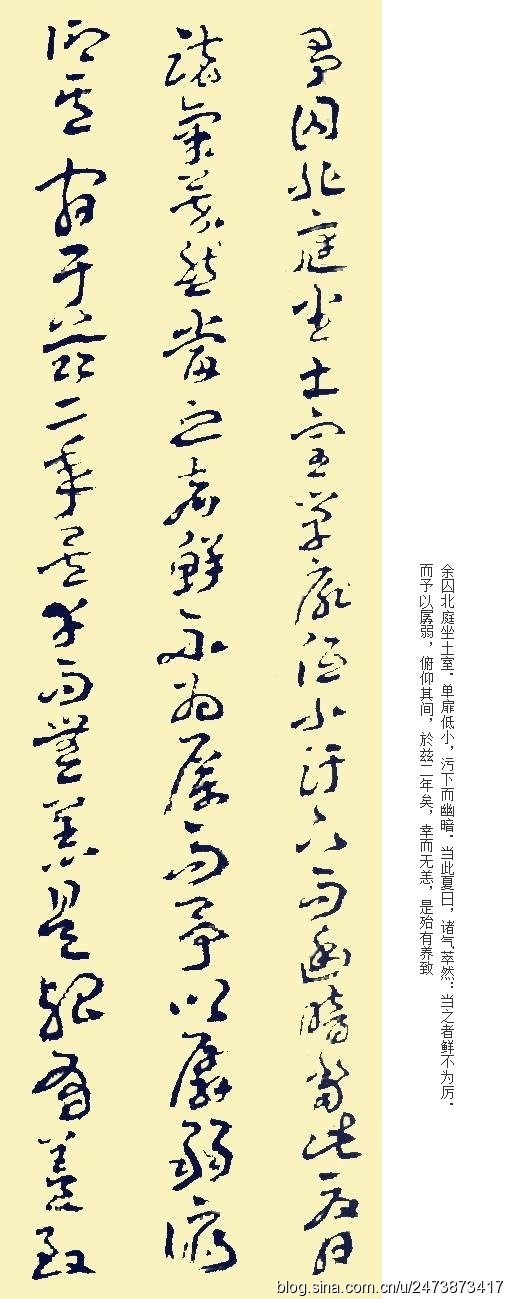 余囚北庭坐土室．单扉低小，污下而幽暗．当此夏日，诸气萃然．当之者鲜不为厉．
而予以孱弱，俯仰其间，於兹二年矣，幸而无恙，是殆有养致
予囚北庭坐土室單扉低小汙下而幽暗當此夏日
諸氣萃然當之者鮮不為厲而予以孱弱俯
仰其間于茲二年矣幸而無恙是殆有養致
blog.sina.com.cn/u/2473873417